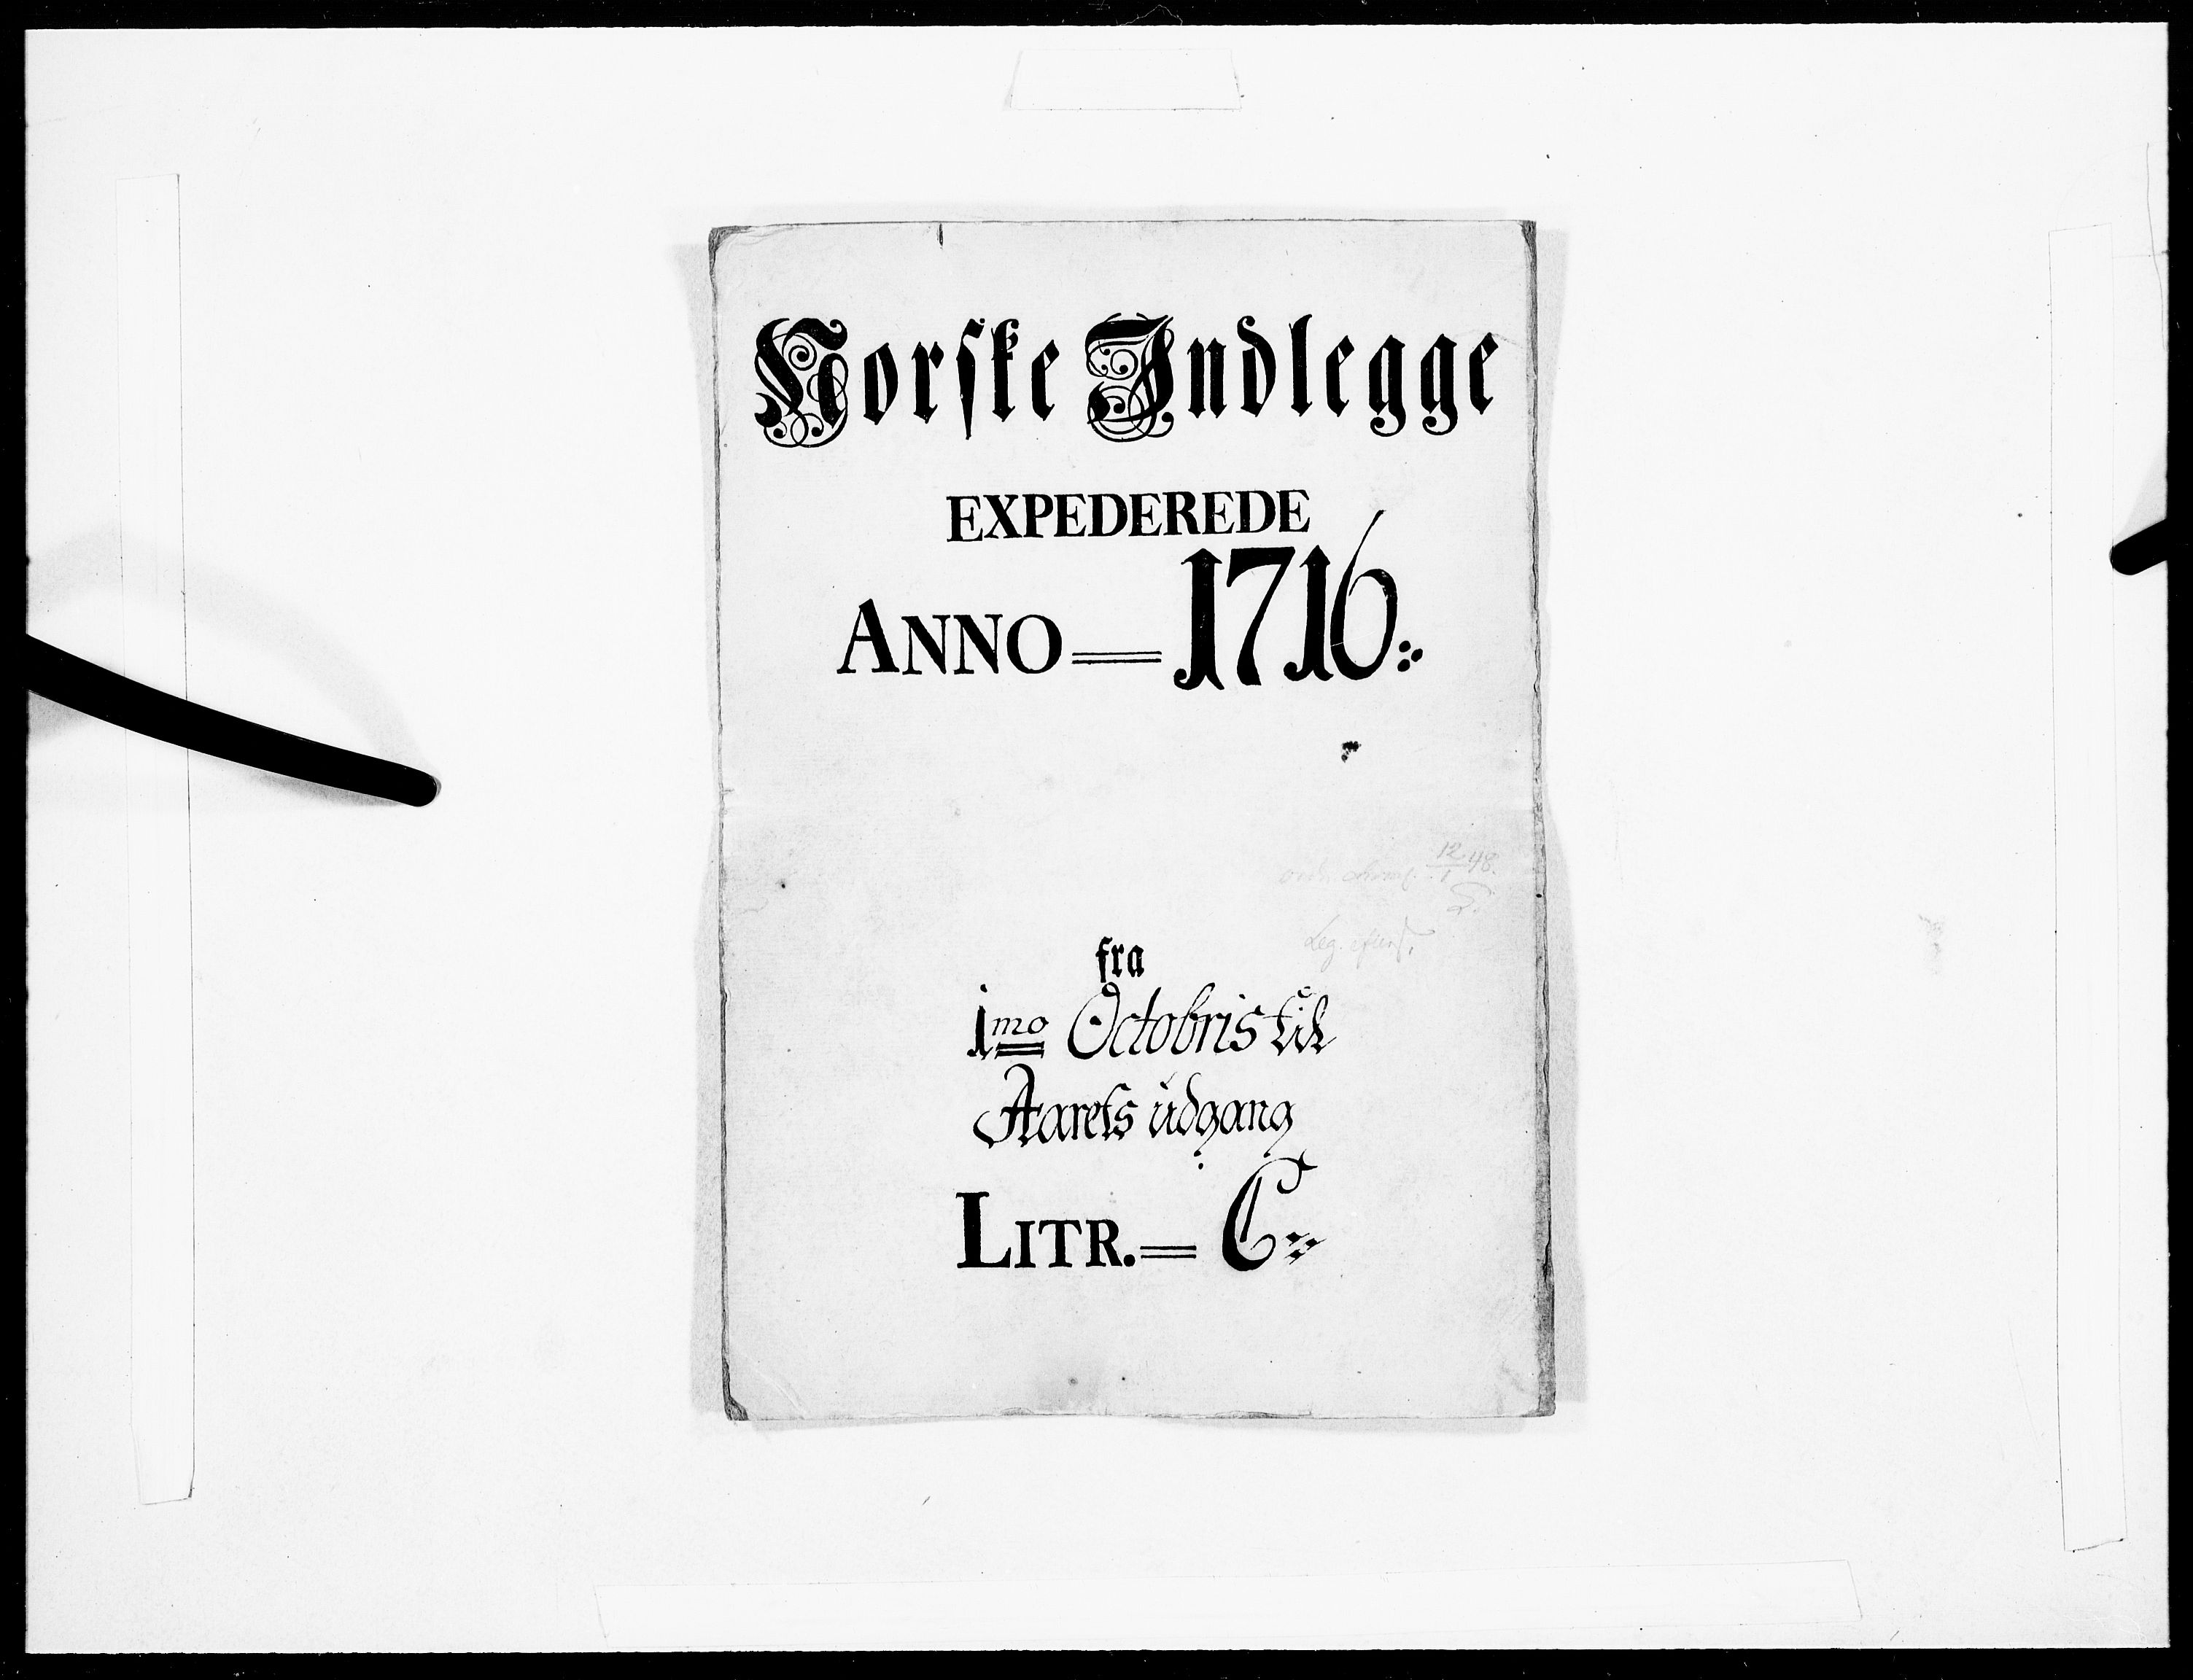 Norske Indlegge
EXPEDEREDE
ANNO = 1716.
12/1 48.
Leg.
fra
1mo Octobris til
Aarets udgang
LITR. = C